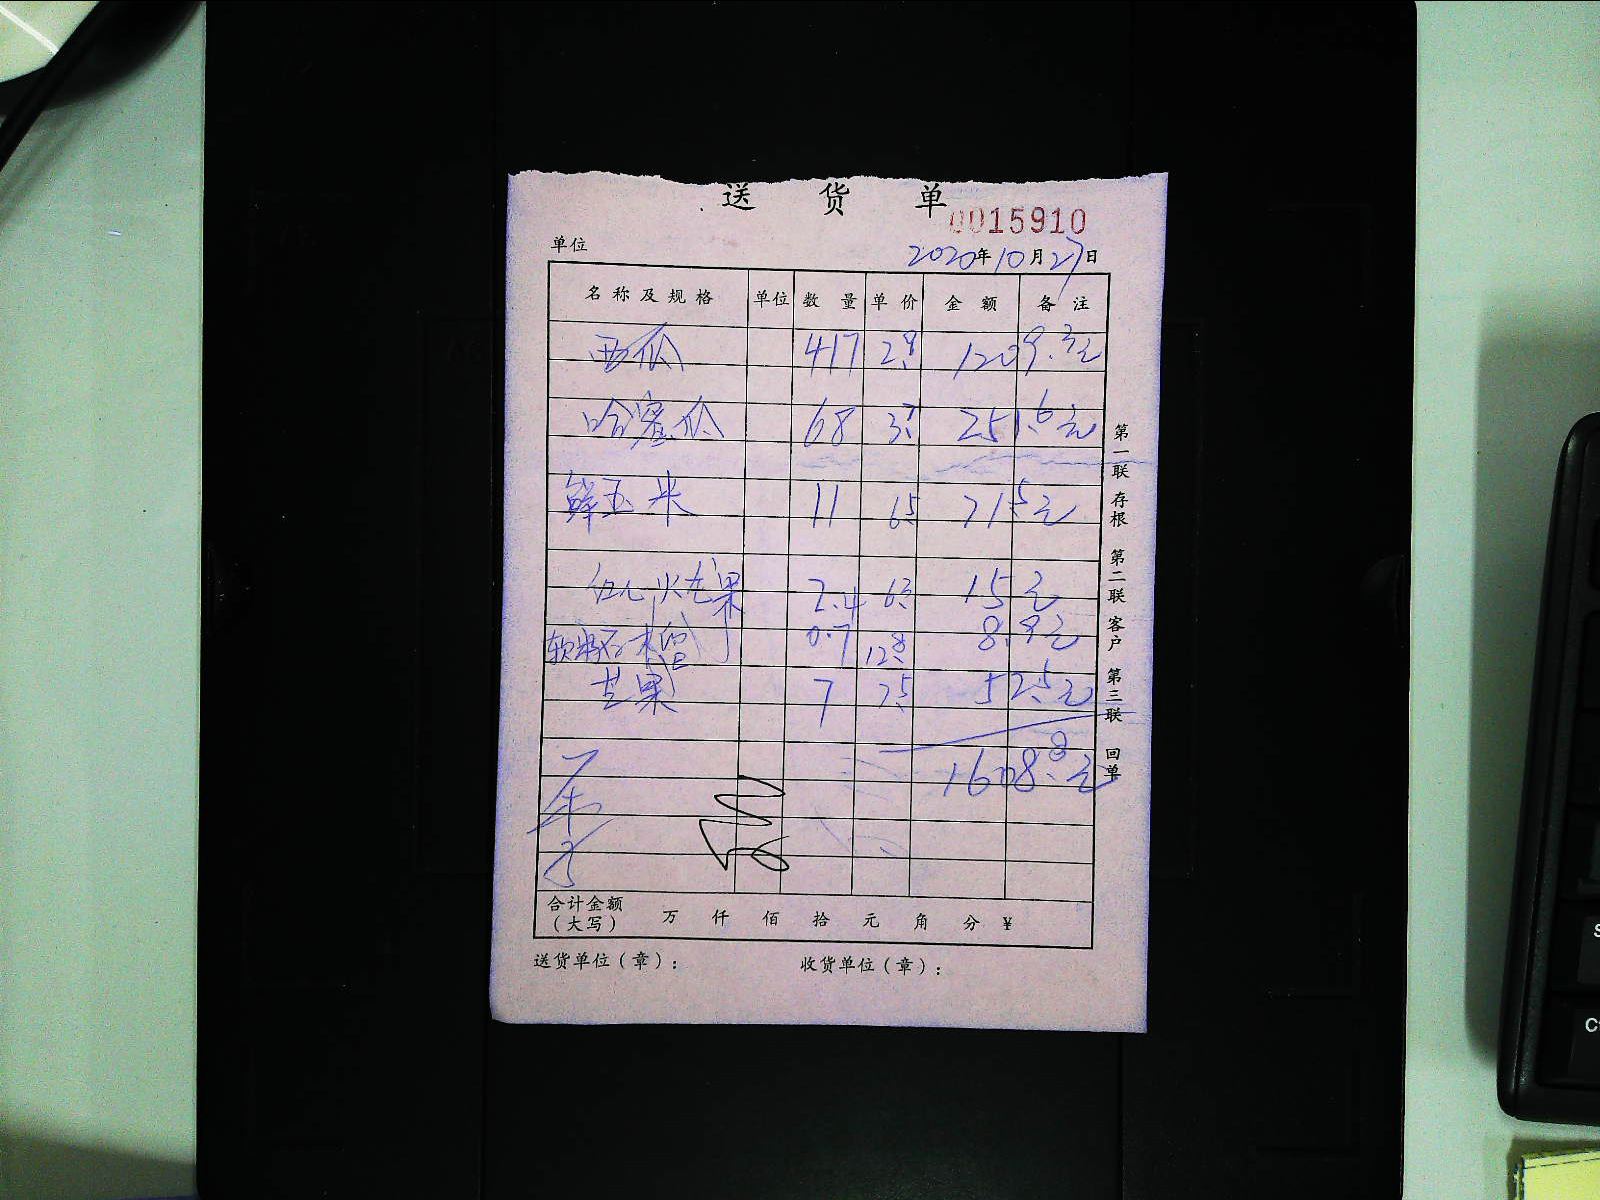 送 货 单
0015910
单位 2020年10月27日
名称及规格 单位 数量 单价 金额 备注
西瓜 417 2.9 1209.3元
哈蜜瓜 68 3.7 251.6元
鲜玉米 11 6.5 71.5元
红心火龙果 2.4 6.3 15元
软籽石榴 0.7 12.8 8.9元
芒果 7 7.5 52.5元
1608.8元
合计金额(大写) 万 仟 佰 拾 元 角 分 ¥
送货单位(章): 收货单位(章):
第一联 存根 第二联 客户 第三联 回单